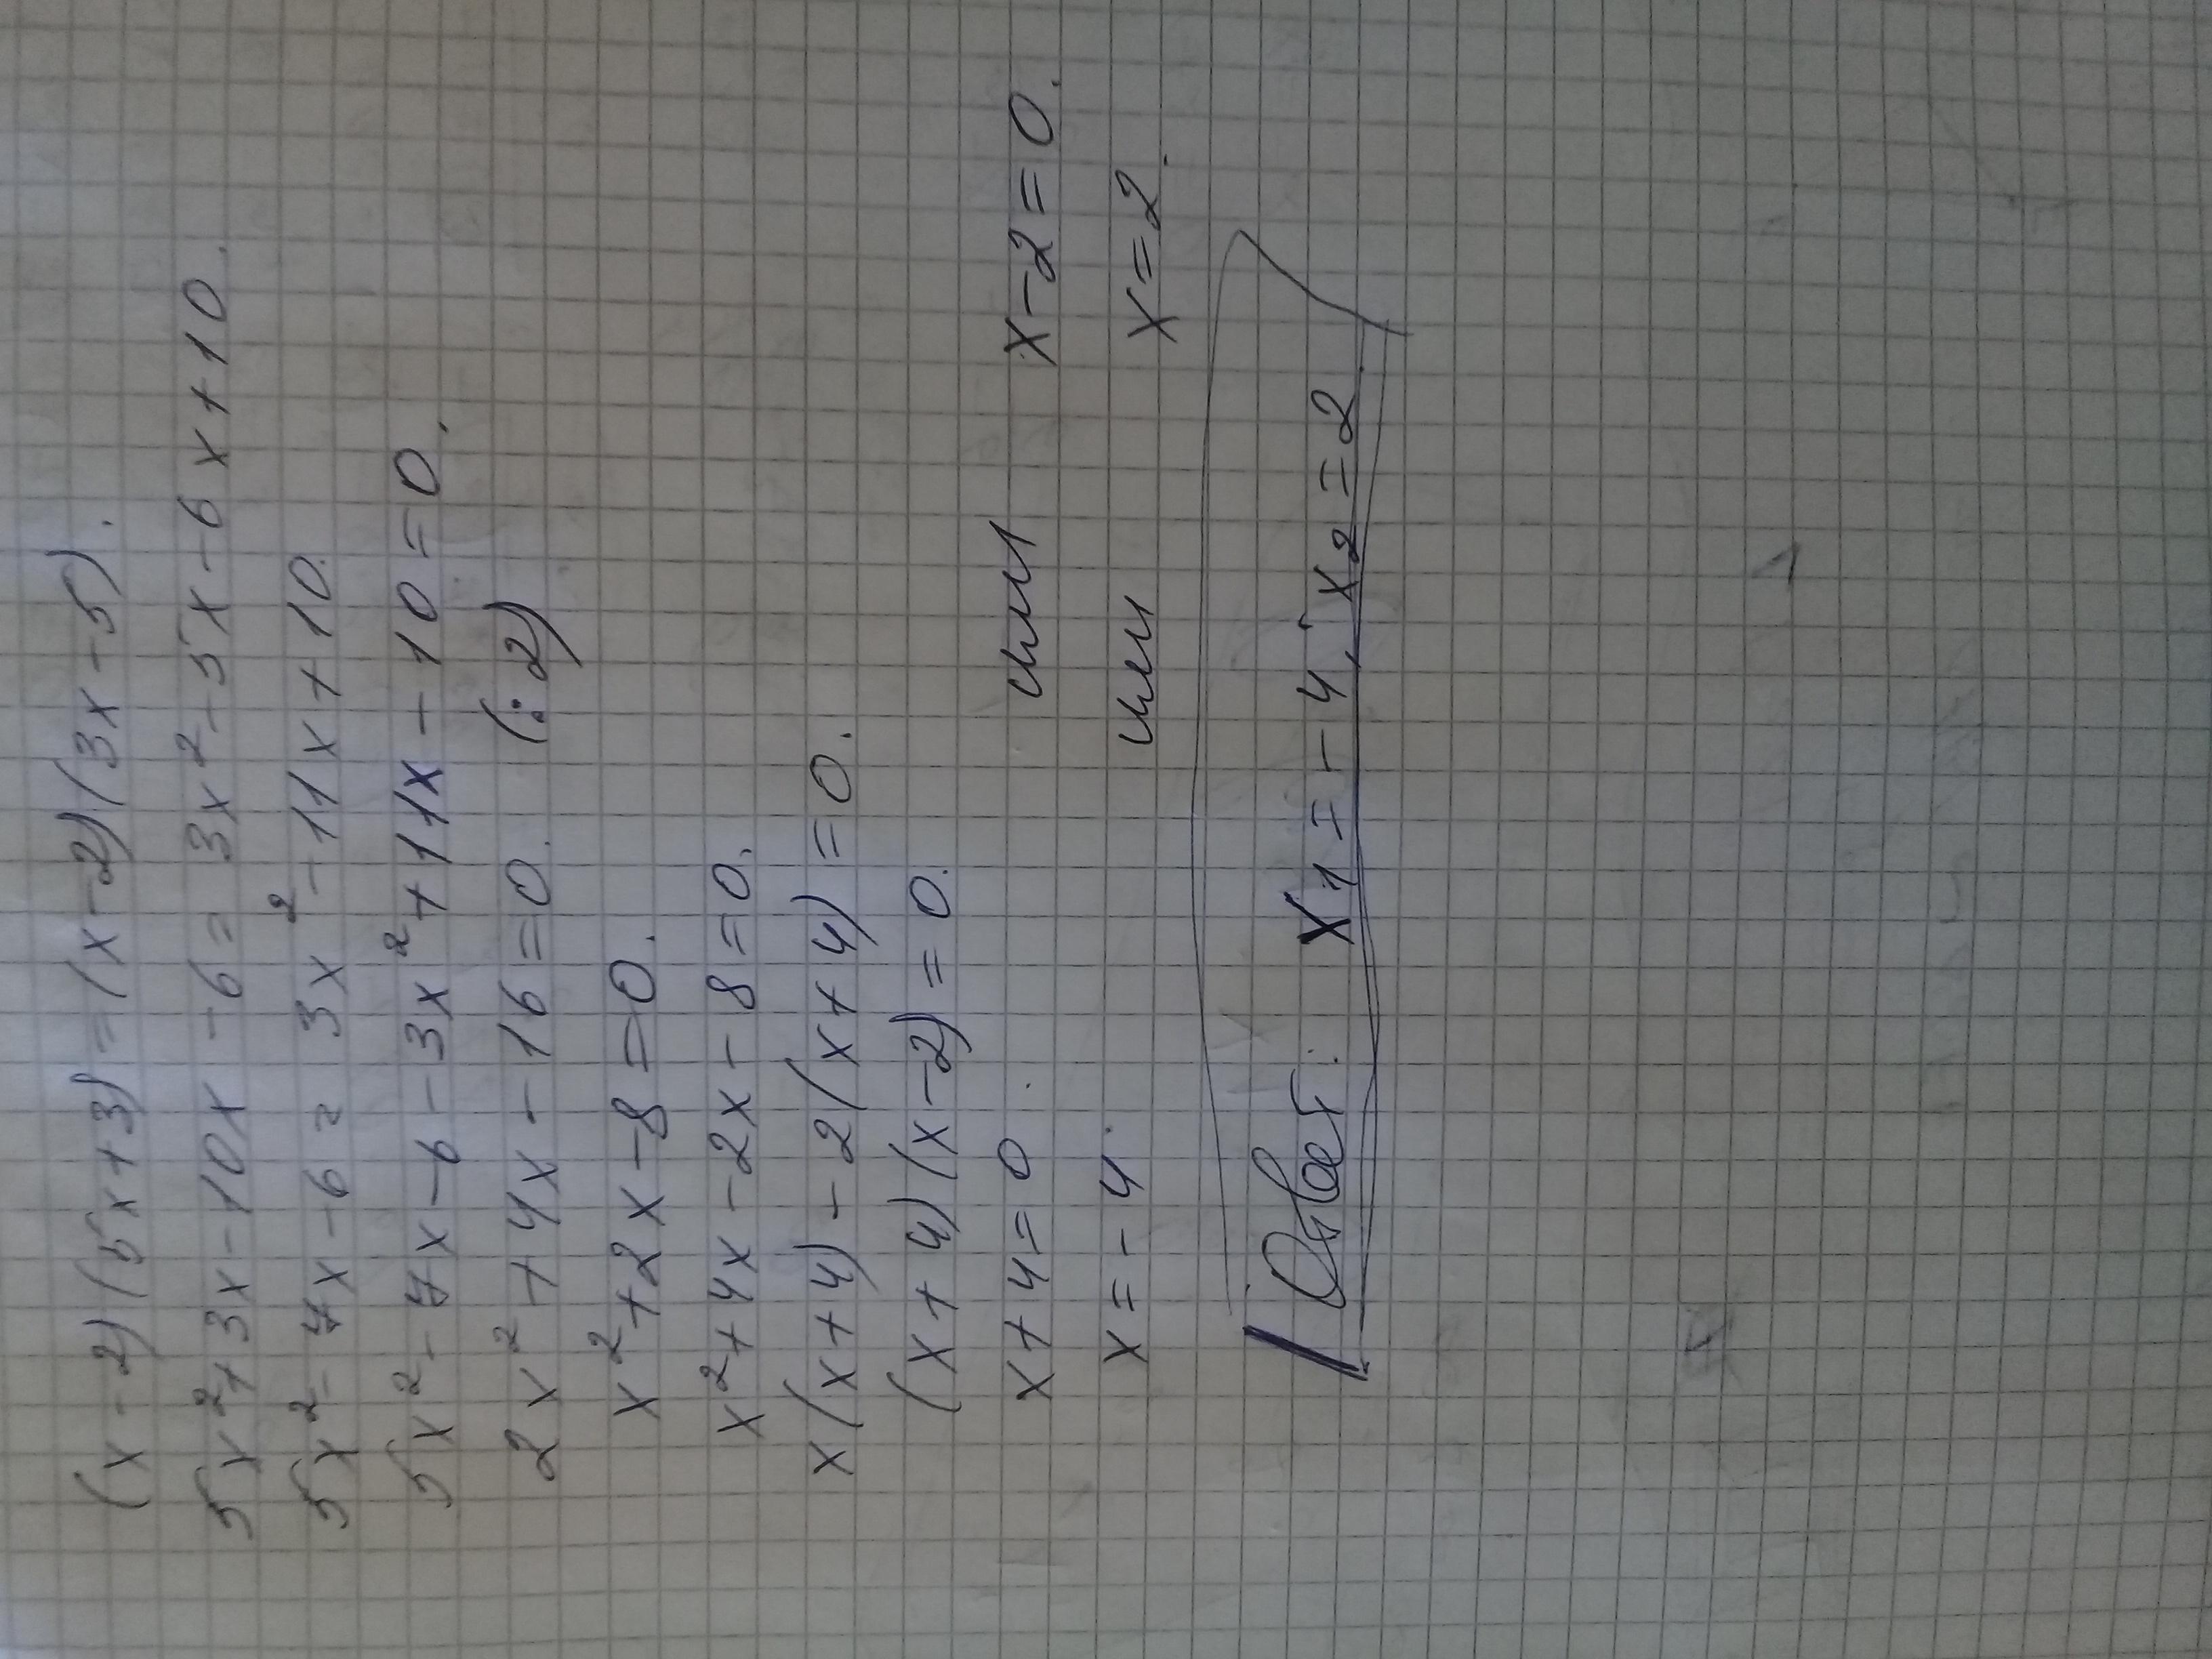 (x-2)(5x+3)=(x-2)(3x-5).
5x²+3x-10x-6=3x²-5x-6x+10.
5x²-7x-6=3x²-11x+10.
5x²-7x-6-3x²+11x-10=0.
2x²+4x-16=0. (:2)
x²+2x-8=0.
x²+4x-2x-8=0.
x(x+4)-2(x+4)=0.
(x+4)(x-2)=0.
x+4=0. или x-2=0.
x=-4. или x=2.
Ответ: x₁=-4, x₂=2.